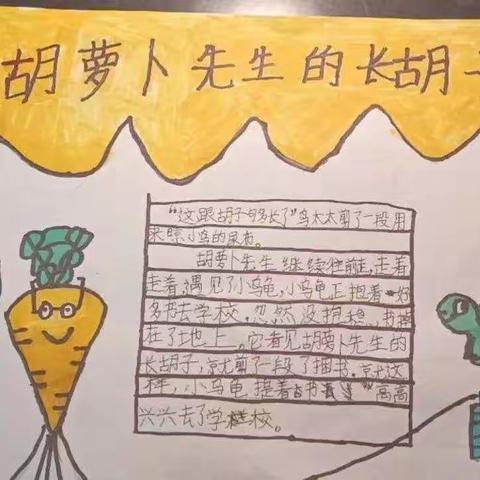 胡萝卜先生的长胡
"这跟胡子够长了"鸟太太剪了一段用
来晾小鸟的尿布。
胡萝卜先生继续往前走,走着
走着,遇见了小乌龟,小乌龟正抱着一好
多书去学校,忽然没抱稳,书掉
在了地上。它看见胡萝卜先生的
长胡子,就剪了一段了捆书,就这
样,小乌龟提着书高高
兴兴去了学校。